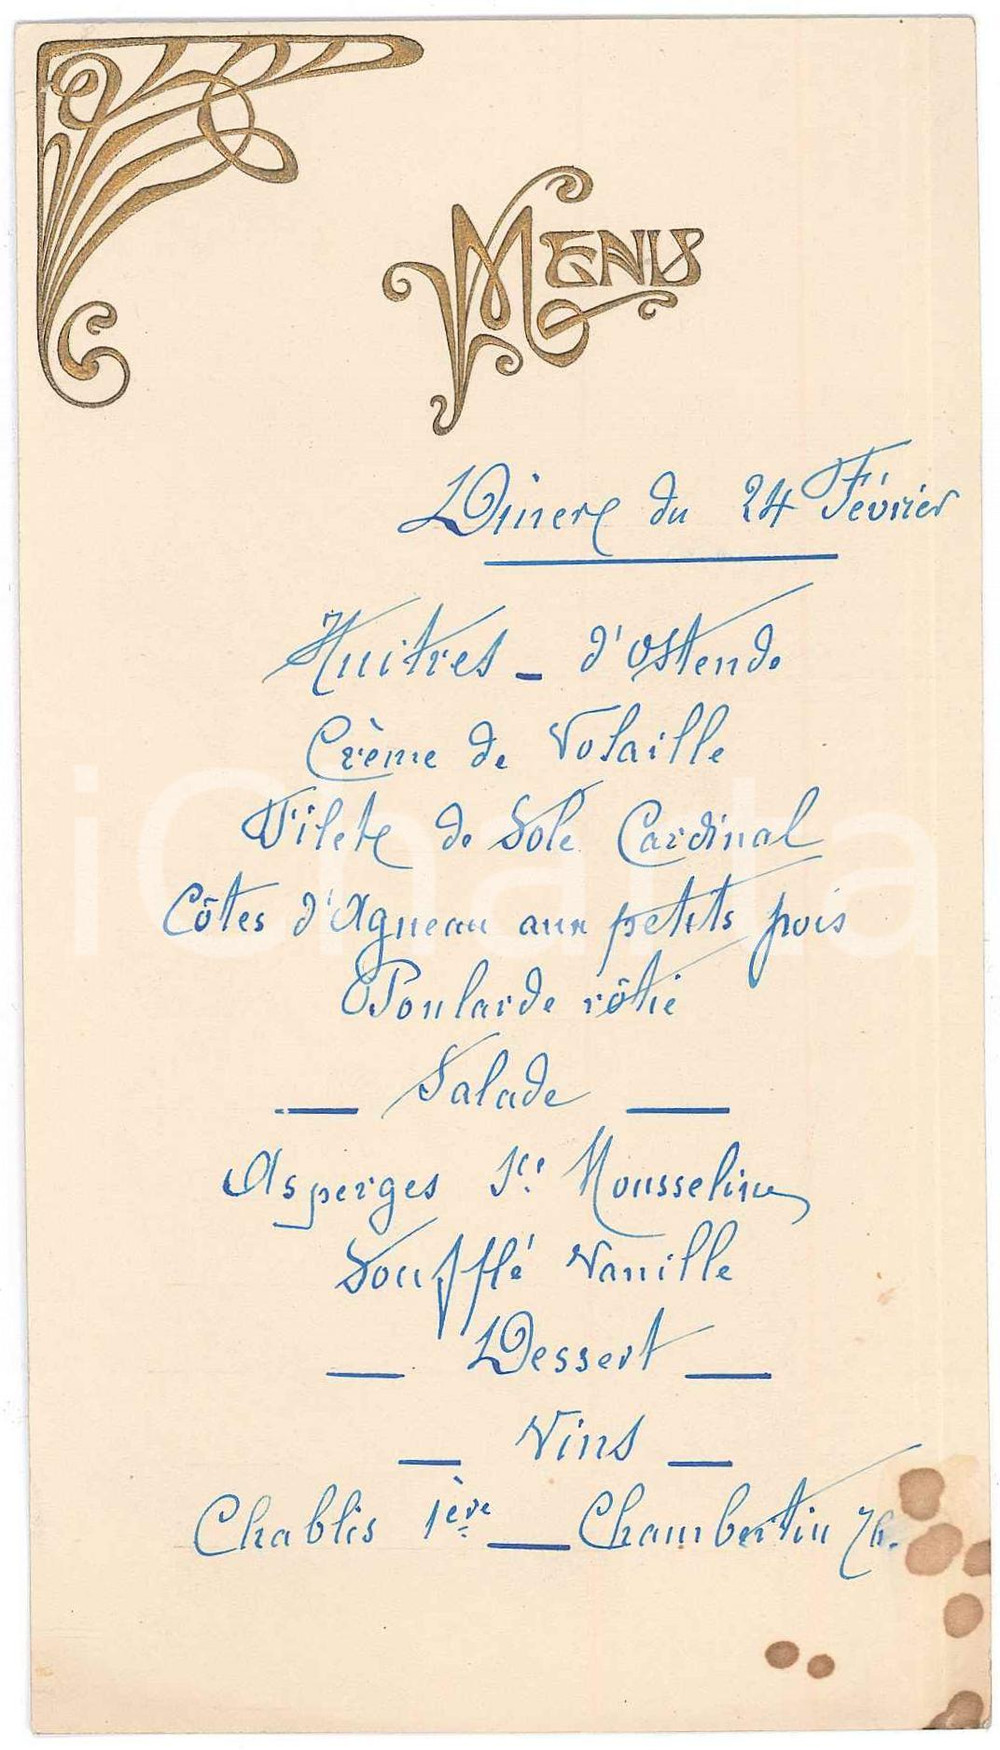 Menu
Dîner du 24 Février
Huitres - d'Ostende
Crème de Volaille
Filets de Sole Cardinal
Côtes d'Agneau aux petits pois
Poularde rôtie
— Salade —
Asperges Sce Mousseline
Soufflé Vanille
— Dessert —
— Vins —
Chablis 1ère — Chambertin 76.
iCharta